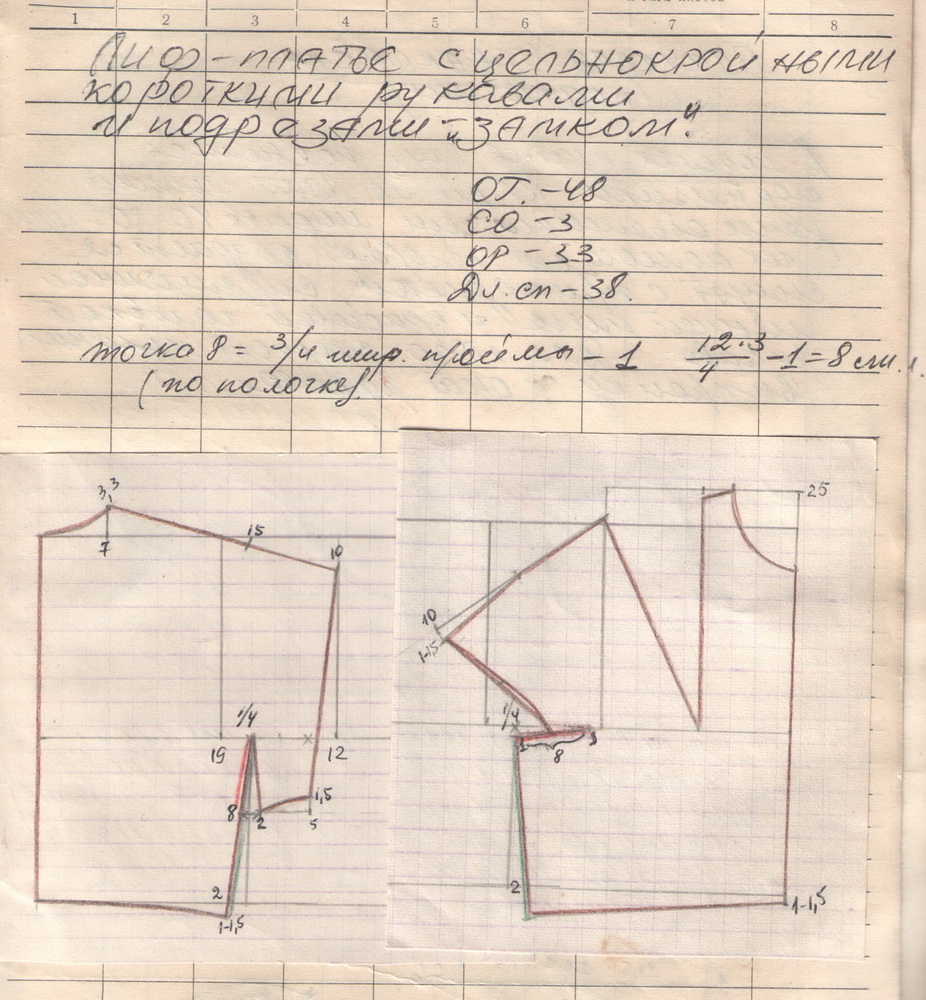 1 2 3 4 5 6 7 8
Лиф-платье с цельнокройными
короткими рукавами
и подрезами - "замком".
ОТ. - 48
СО - 3
ОР - 33
Дл. сп - 38.
точка 8 = 3/4 шир. проймы - 1 12.3/4 - 1 = 8 см.
(по полочке)
3,3
7
15
10
1/4
19
12
8
2
1,5
5
2
1-1,5
25
10
1-1,5
1/4
1
3
8
2
1-1,5